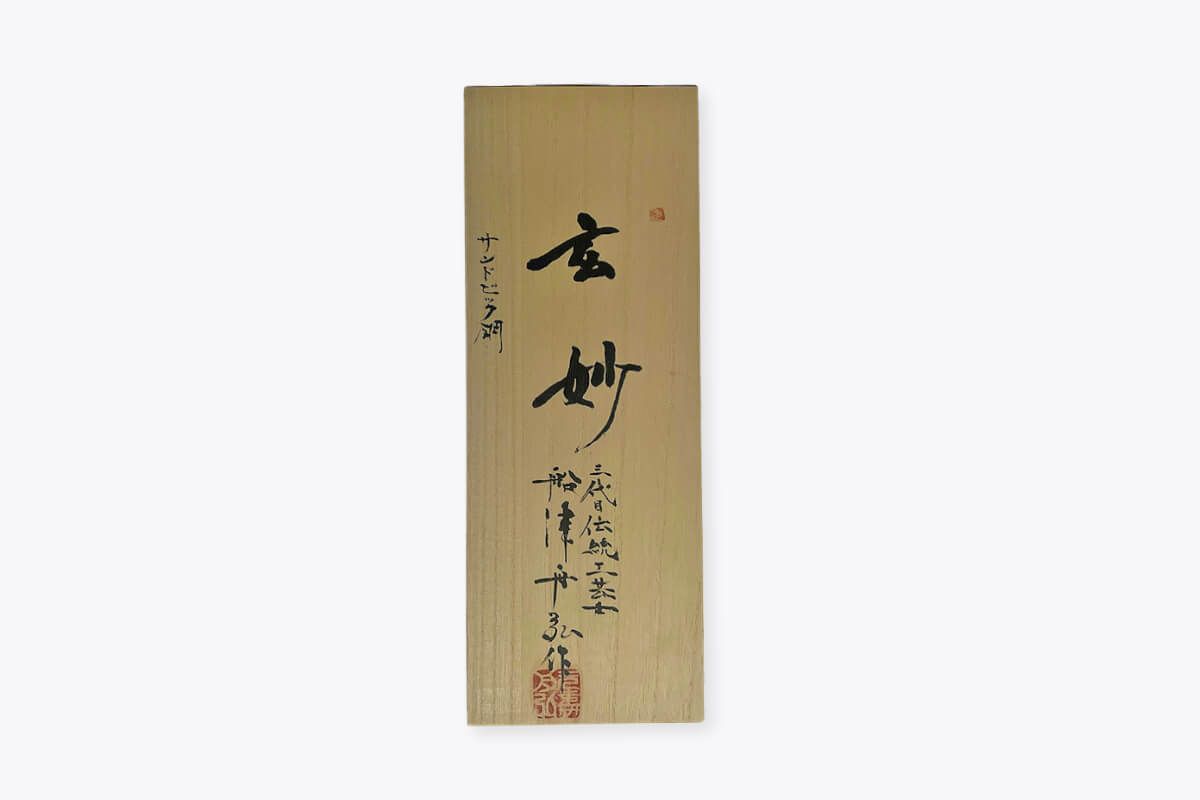 玄妙
三代目伝統工芸士
船津舟弘作
サンドビック鋼